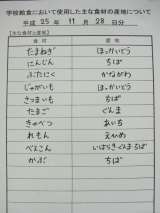 学校給食において使用した主な食材の産地について
平成 25年 11月 28日分
【主な食材の産地】
食材 産地
たまねぎ ほっかいどう
にんじん ちば
ぶたにく かながわ
じゃがいも ほっかいどう
さつまいも ちば
たまご ぐんま
きゃべつ あいち
れもん えひめ
べえこん いばらき ぐんま ちば
かぶ ちば